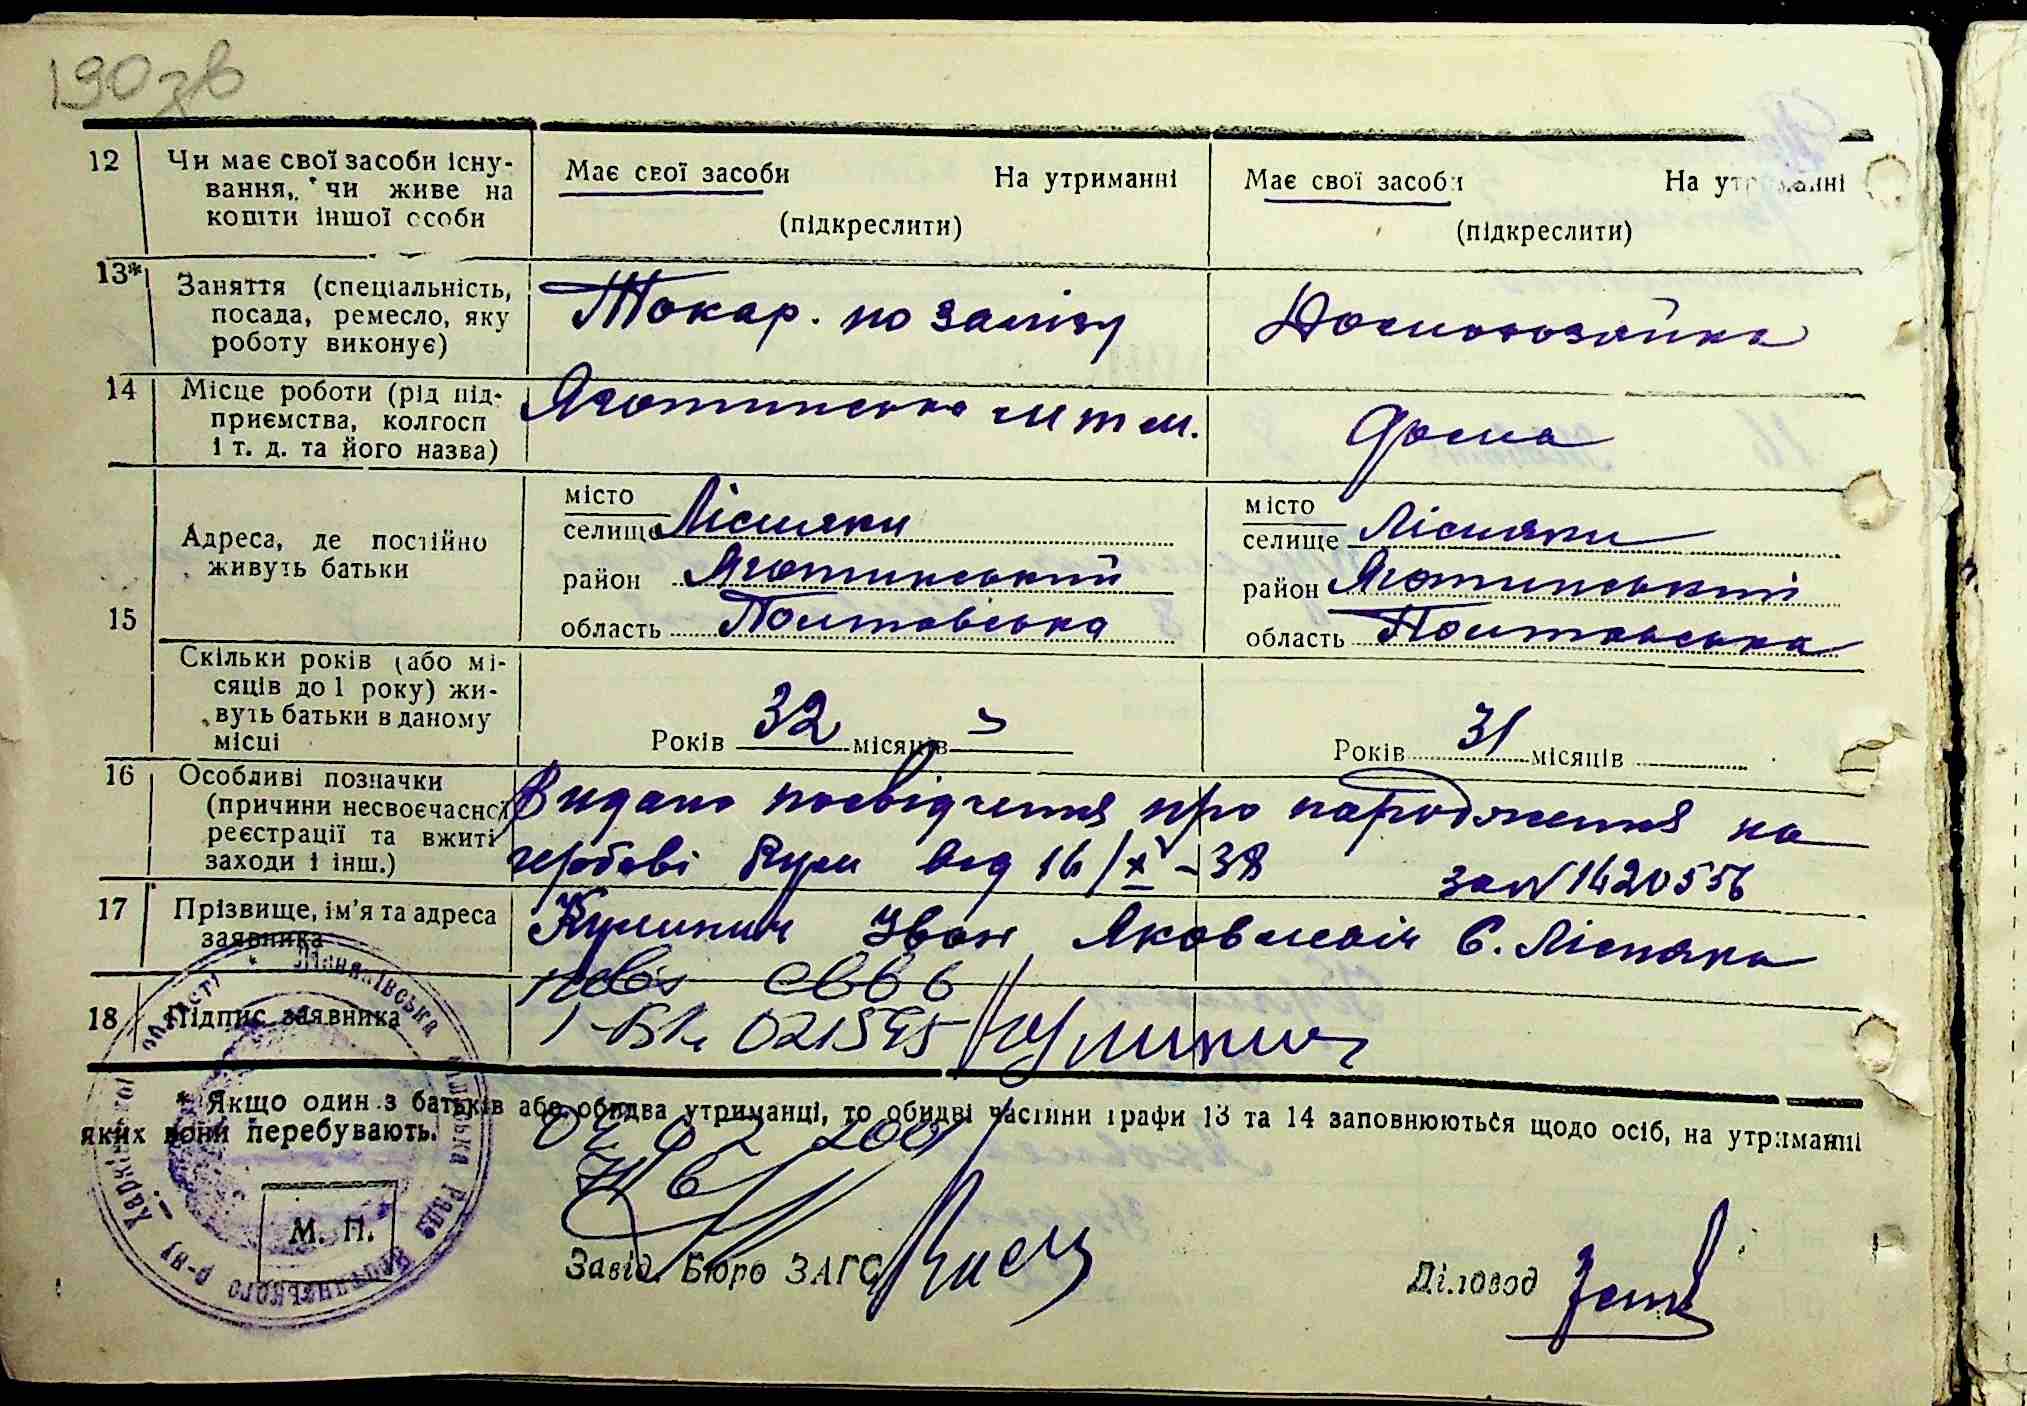 190 зв
12 Чи має свої засоби існу-
вання, чи живе на
кошти іншої особи
Має свої засоби На утриманні
(підкреслити)
Має свої засоби На утриманні
(підкреслити)
13* Заняття (спеціальність,
посада, ремесло, яку
роботу виконує)
Токар. по залізу
Домохозяйка
14 Місце роботи (рід під-
приємства, колгосп
і т. д. та його назва)
Яготинська мтм.
Дома
15 Адреса, де постійно
живуть батьки
місто
селище Лісняки
район Яготинський
область Полтавська
місто
селище Лісняки
район Яготинський
область Полтавська
Скільки років (або мі-
сяців до 1 року) жи-
вуть батьки в даному
місці
Років 32 місяців
Років 31 місяців
16 Особливі позначки
(причини несвоєчасної
реєстрації та вжиті
заходи і інш.)
Видано посвідчення про народження на
гербові від 16/X-38 за № 1420556
17 Прізвище, ім'я та адреса
заявника
Кулинич Іван Яковлевіч С. Лісняки
18 Підпис заявника
021545 Кулинич
* Якщо один з батьків або обидва утриманці, то обидві частини графи 13 та 14 заповнюються щодо осіб, на утриманні
яких вони перебувають.
2001
М. П.
Завід. Бюро ЗАГС
Діловод